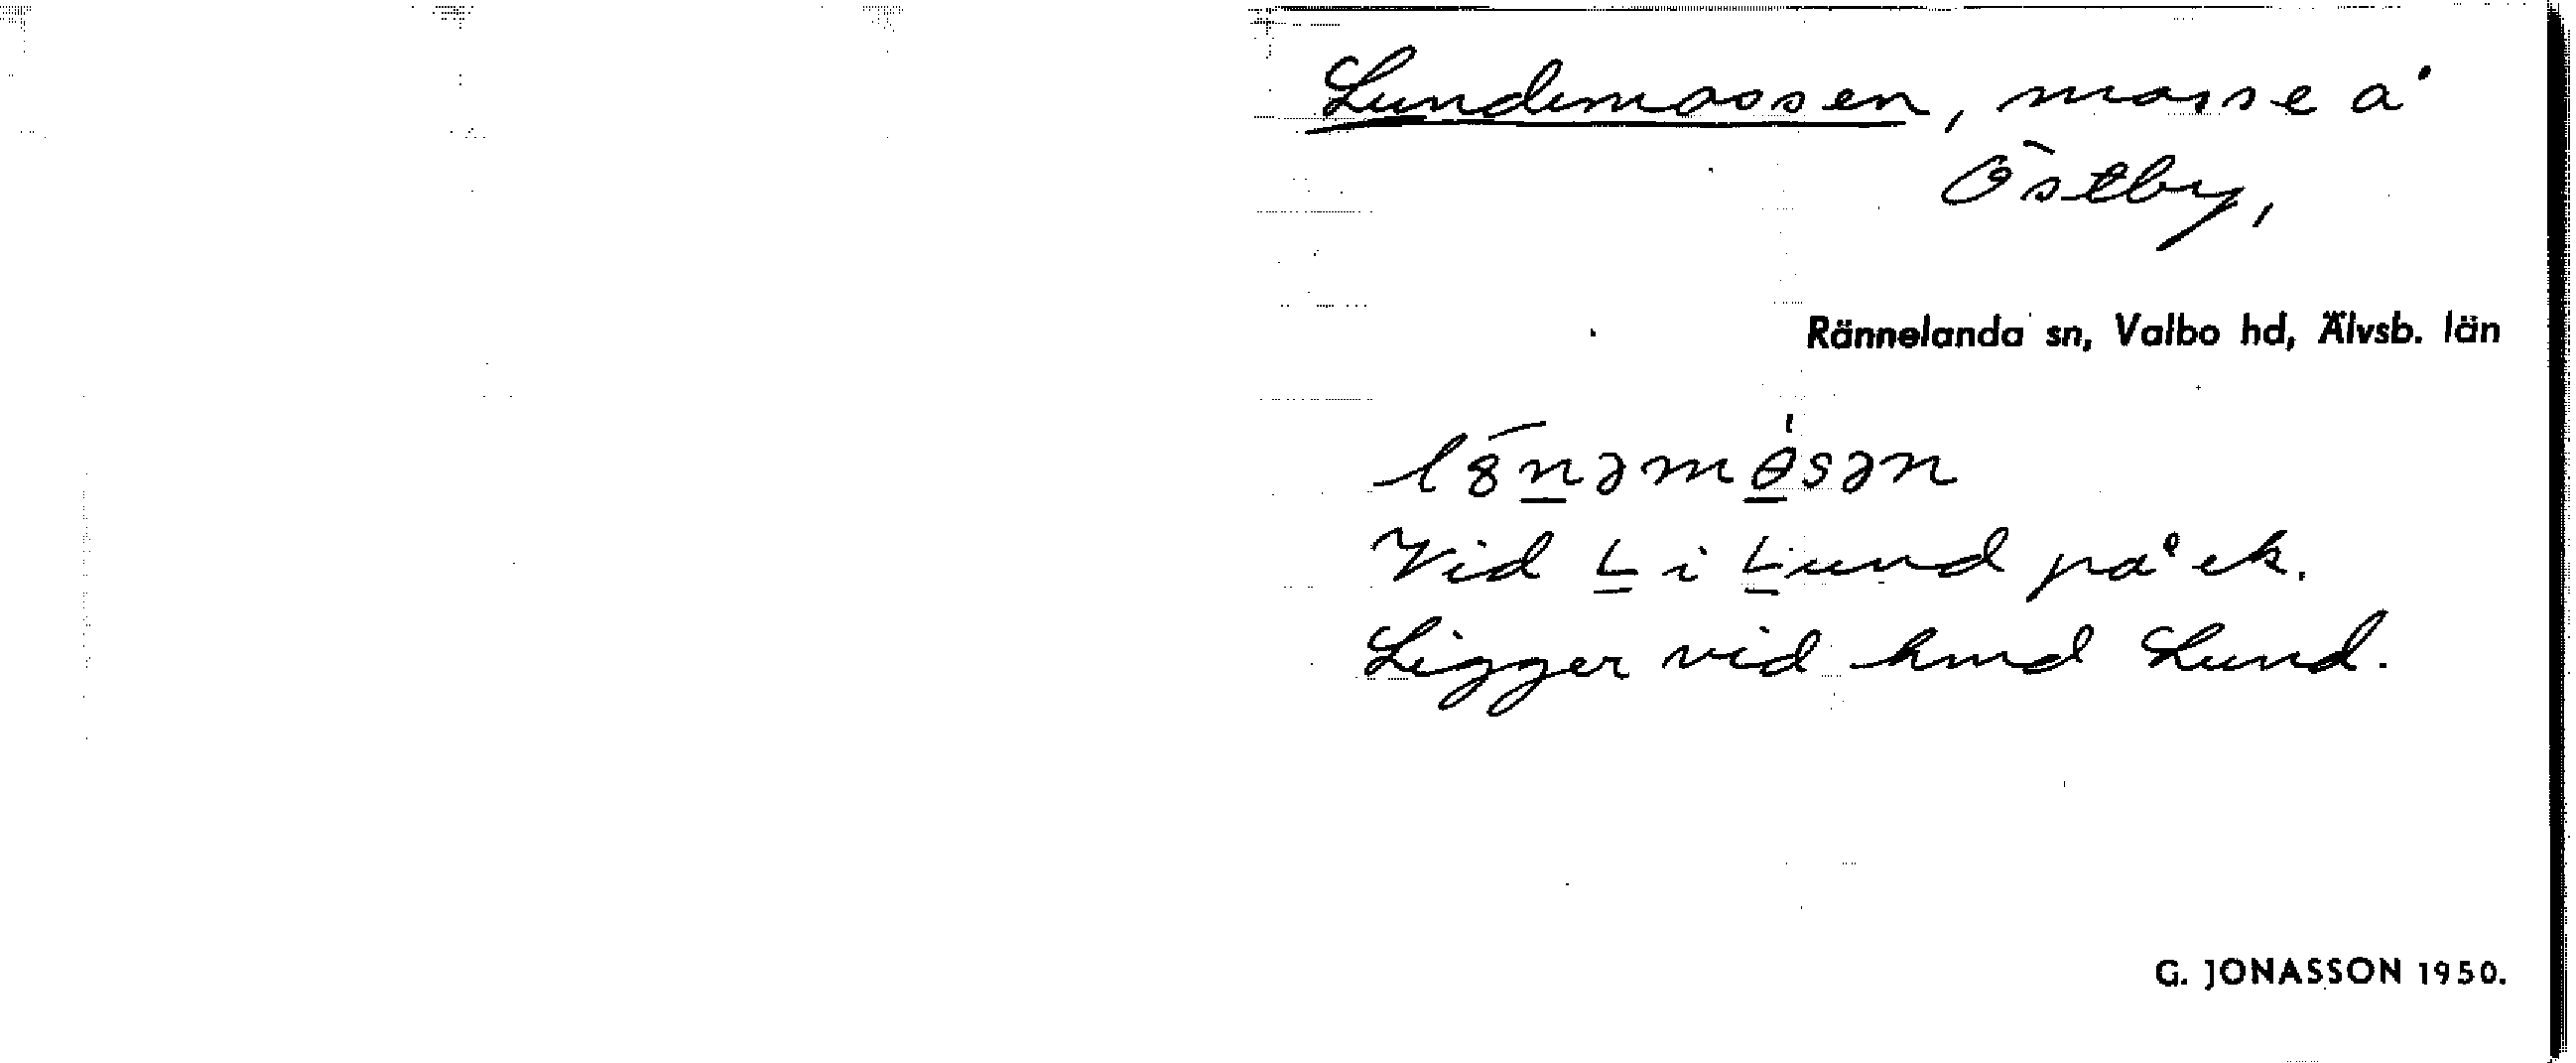 Lundemossen, mosse å
Östby,
Rännelanda sn, Valbo hd, Älvsb. län
Vid L i Lund på ek.
Ligger vid hmd Lund.
G. JONASSON 1950.